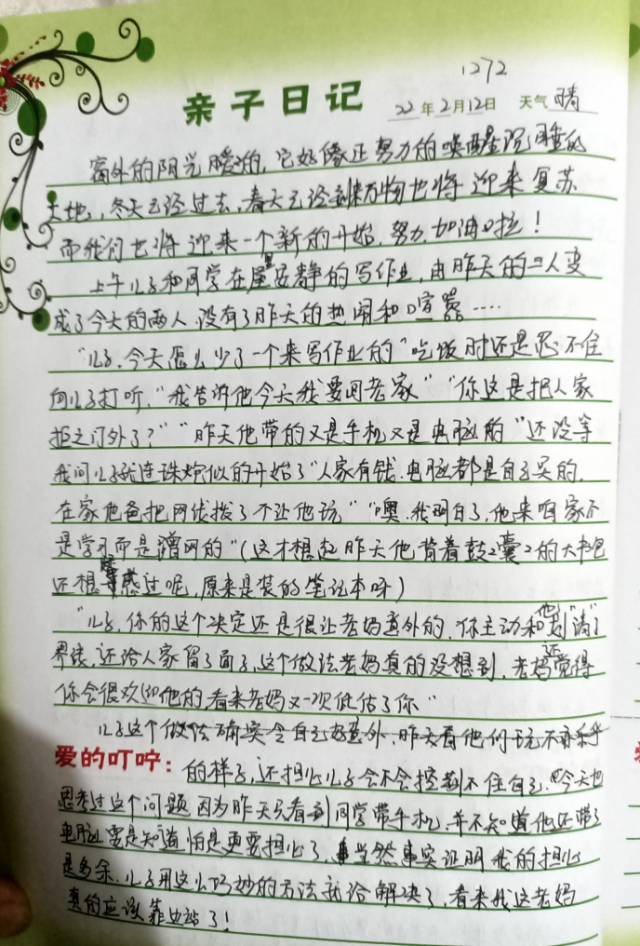 1272
亲子日记 22年2月12日 天气 晴
窗外的阳光暖洋洋的,它好像正努力的唤醒沉睡的
土地,冬天已经过去,春天已经到来万物也将迎来复苏
而我们也将迎来一个新的开始,努力,加油啦!
上午儿子和同学在屋里安静的写作业,由昨天的三人变
成了今天的两人,没有了昨天的热闹和喧嚣……
“儿子,今天怎么少了一个来写作业的”吃饭时还是忍不住
向儿子打听,“我告诉他今天我要回老家”“你这是把人家
拒之门外了?”“昨天他带的又是手机又是电脑的”还没等
我问儿子就连珠炮似的开始了“人家有钱,电脑都是自己买的,
在家他爸把网线拔了不让他玩”“噢,我明白了,他来咱家不
是学习而是蹭网的”(这才想起昨天他背着鼓鼓囊囊的大书包
还想过呢,原来是装的笔记本呀)
“儿子,你的这个决定还是很让老妈意外的,你主动和他划“清”了
界线,还给人家留了面子,这个做法老妈真的没想到,老妈还觉得
你会很欢迎他的,看来老妈又一次低估了你”
儿子这个做法确实令自己好意外,昨天看他们玩不亦乐乎
爱的叮咛:的样子,还担心儿子会不会控制不住自己,今天也
思考过这个问题因为昨天只看到同学带手机,并不知道他还带了
电脑要是知道怕是更要担心了,当然事实证明我的担心
是多余,儿子用这么巧妙的方法就给解决了,看来我这老妈
真的应该靠边站了!